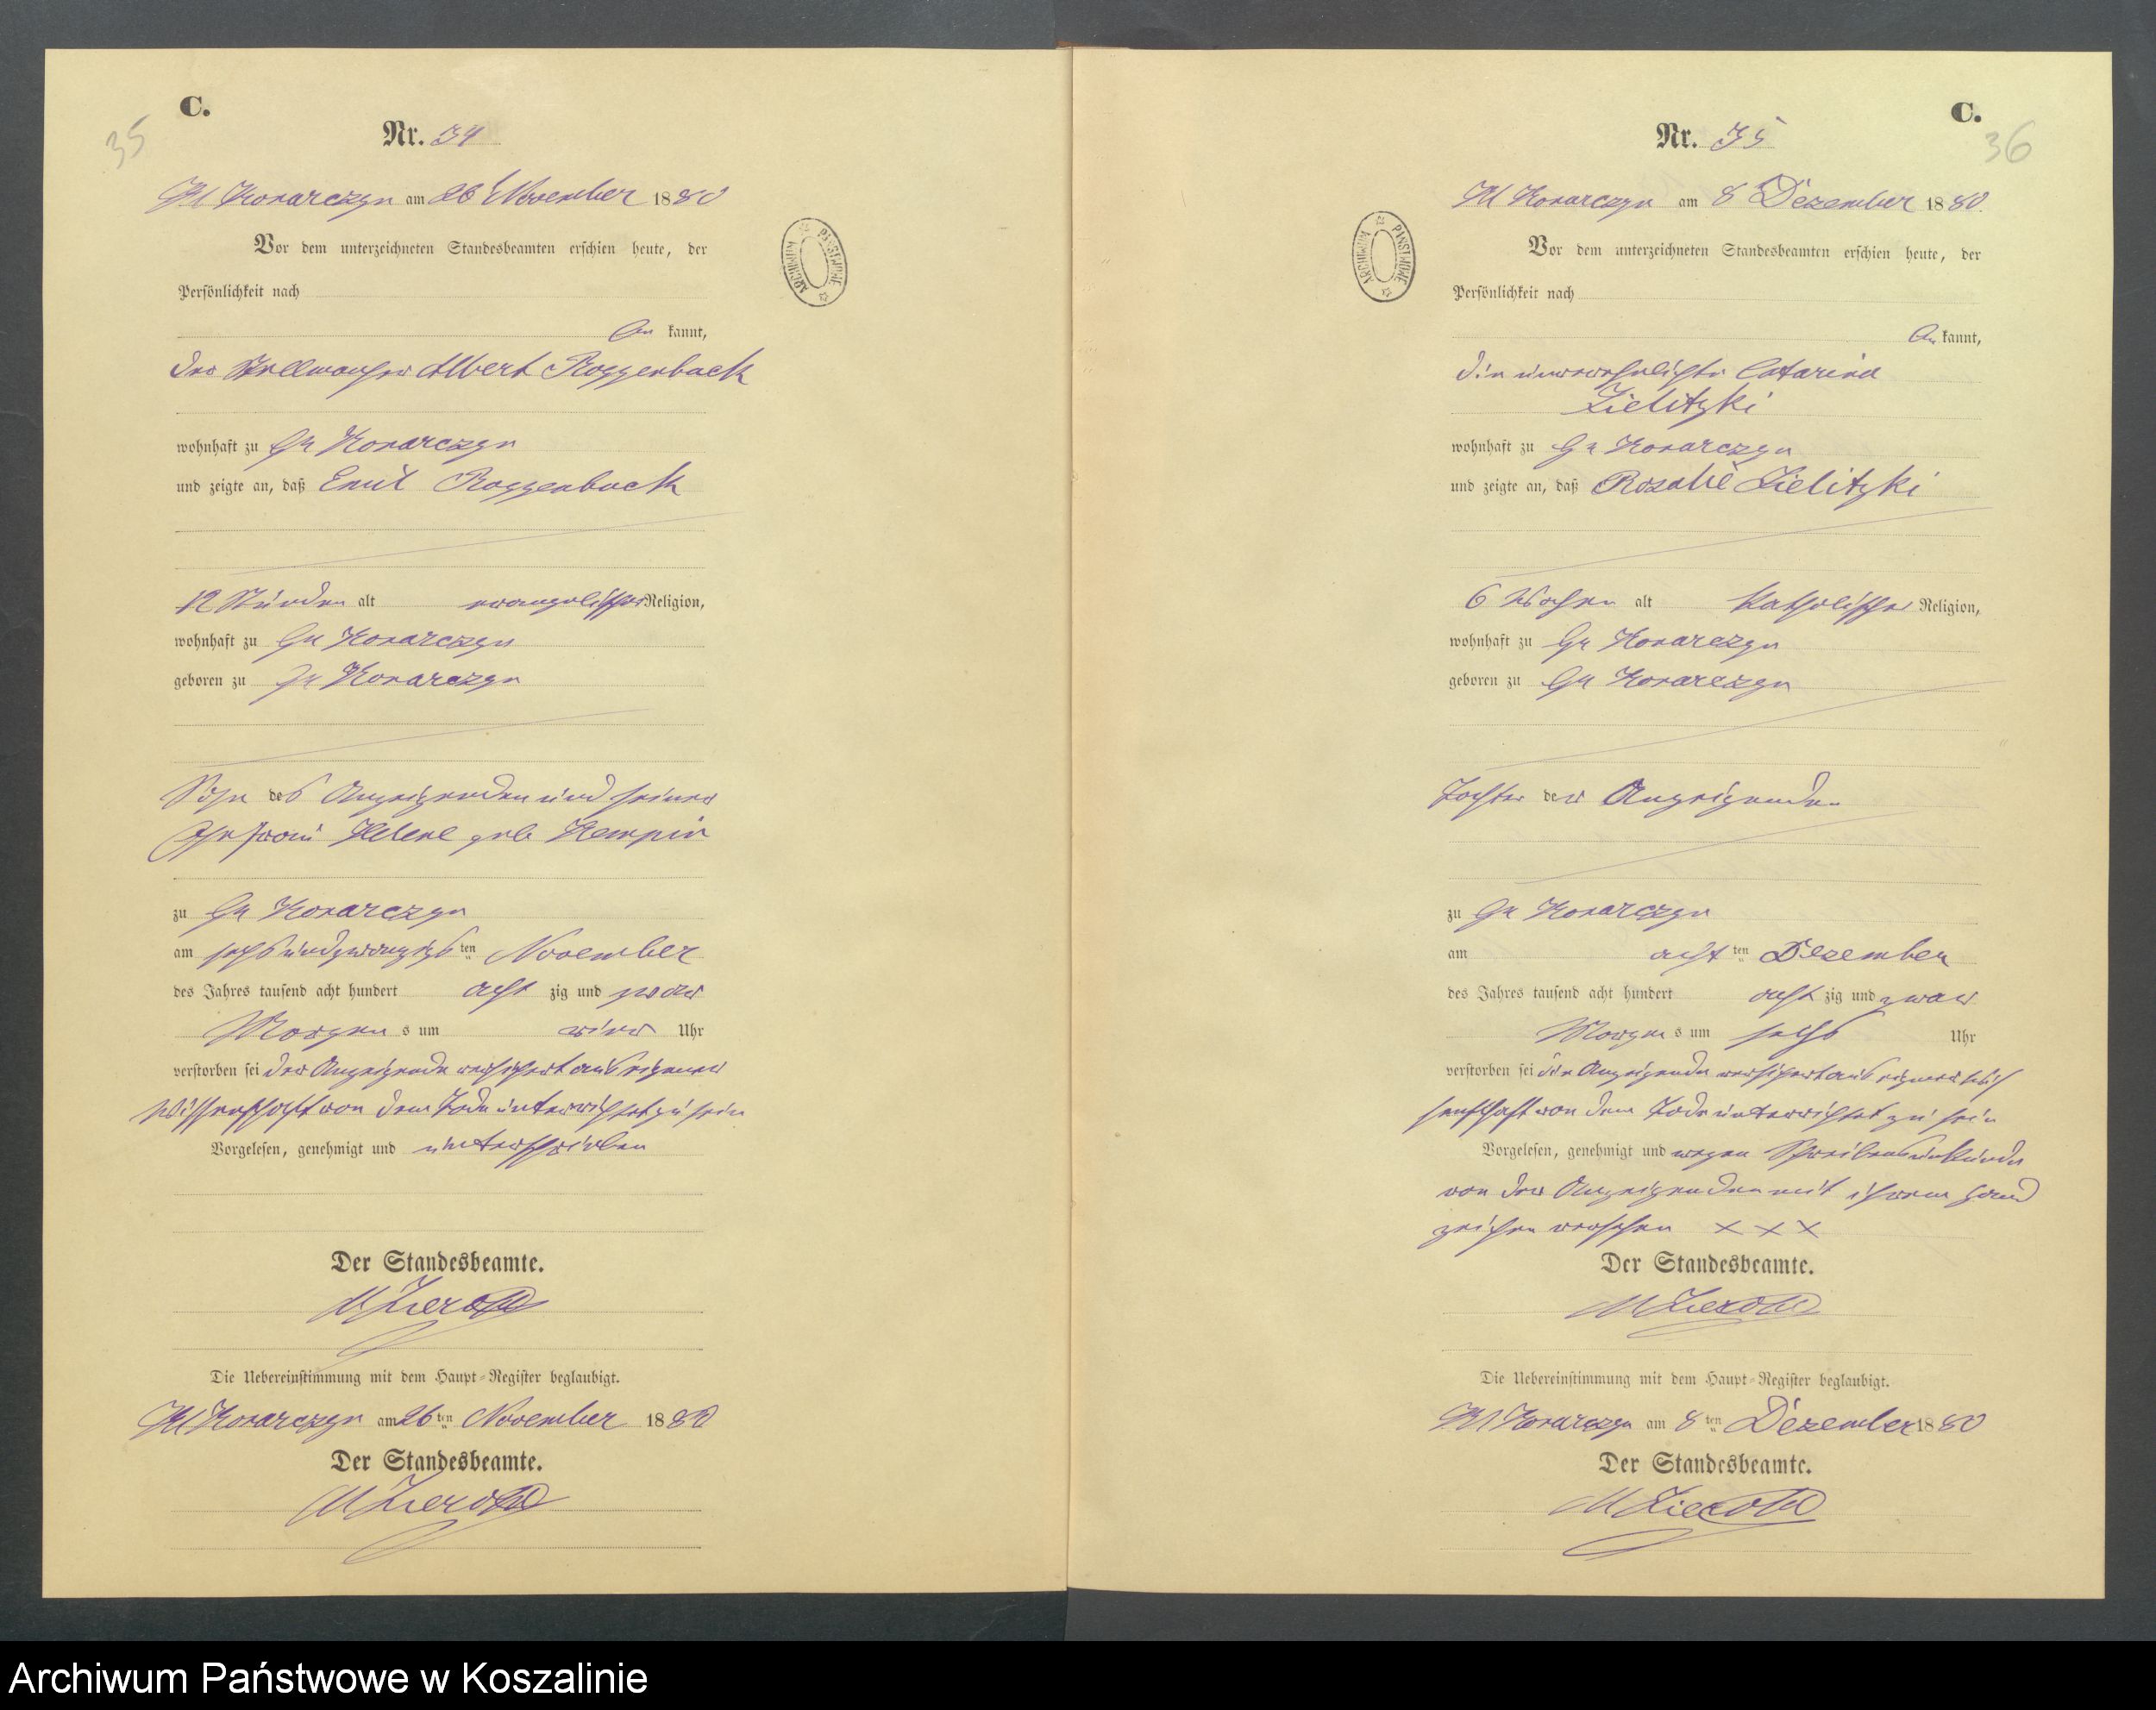 35
C.
Nr. 34
Kl Konarczyn am 26 November 1880
Vor dem unterzeichneten Standesbeamten erschien heute, der
Persönlichkeit nach
be kannt,
der Stellmacher Albert Roggenbuck
wohnhaft zu Gr Konarczyn
und zeigte an, daß Emil Roggenbuck
12 Stunden alt evangelischer Religion,
wohnhaft zu Gr Konarczyn
geboren zu Gr Konarczyn
Sohn des Anzeigenden und seiner
Ehefrau Helene geb Kempin
zu Gr Konarczyn
am sechsundzwanzigsten November
des Jahres tausend acht hundert acht zig und zwar
Morgens um vier Uhr
verstorben sei der Anzeigende versichert aus eigener
Wissenschaft von dem Tode unterrichtet zu sein
Vorgelesen, genehmigt und unterschrieben
Der Standesbeamte.
Die Uebereinstimmung mit dem Haupt-Register beglaubigt.
Kl Konarczyn am 26ten November 1880
Der Standesbeamte.
ARCHIWUM PAŃSTWOWE
C.
36
Nr. 35
Kl Konarczyn am 8 Dezember 1880.
Vor dem unterzeichneten Standesbeamten erschien heute, der
Persönlichkeit nach
be kannt,
die unverehelichte Catarina
Zielitzki
wohnhaft zu Gr Konarczyn
und zeigte an, daß Rosalie Zielitzki
6 Wochen alt katholischer Religion,
wohnhaft zu Gr Konarczyn
geboren zu Gr Konarczyn
Tochter der Anzeigenden
zu Gr Konarczyn
am achten Dezember
des Jahres tausend acht hundert acht zig und zwar
Morgens um sechs Uhr
verstorben sei die Anzeigende versichert aus eigener Wis
senschaft von dem Tode unterrichtet zu sein
Vorgelesen, genehmigt und wegen Schreibensunkunde
von der Anzeigenden mit ihrem Hand
zeichen versehen × × ×
Der Standesbeamte.
Die Uebereinstimmung mit dem Haupt-Register beglaubigt.
Kl Konarczyn am 8ten Dezember 1880
Der Standesbeamte.
ARCHIWUM PAŃSTWOWE
Archiwum Państwowe w Koszalinie